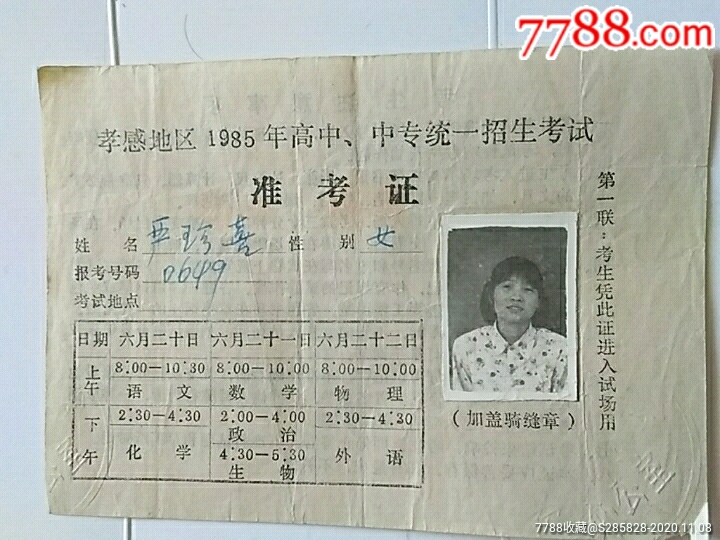 7788.com
孝感地区1985年高中、中专统一招生考试
准考证
姓名 严珍喜 性别 女
报考号码 0649
考试地点
日期 六月二十日 六月二十一日 六月二十二日
上午 8:00—10:30 8:00—10:00 8:00—10:00
语文 数学 物理
下午 2:30—4:30 2:00—4:00 2:30—4:30
化学 政治 外语
4:30—5:30
生物
(加盖骑缝章)
第一联:考生凭此证进入试场用
7788收藏@S285828-2020.11.03